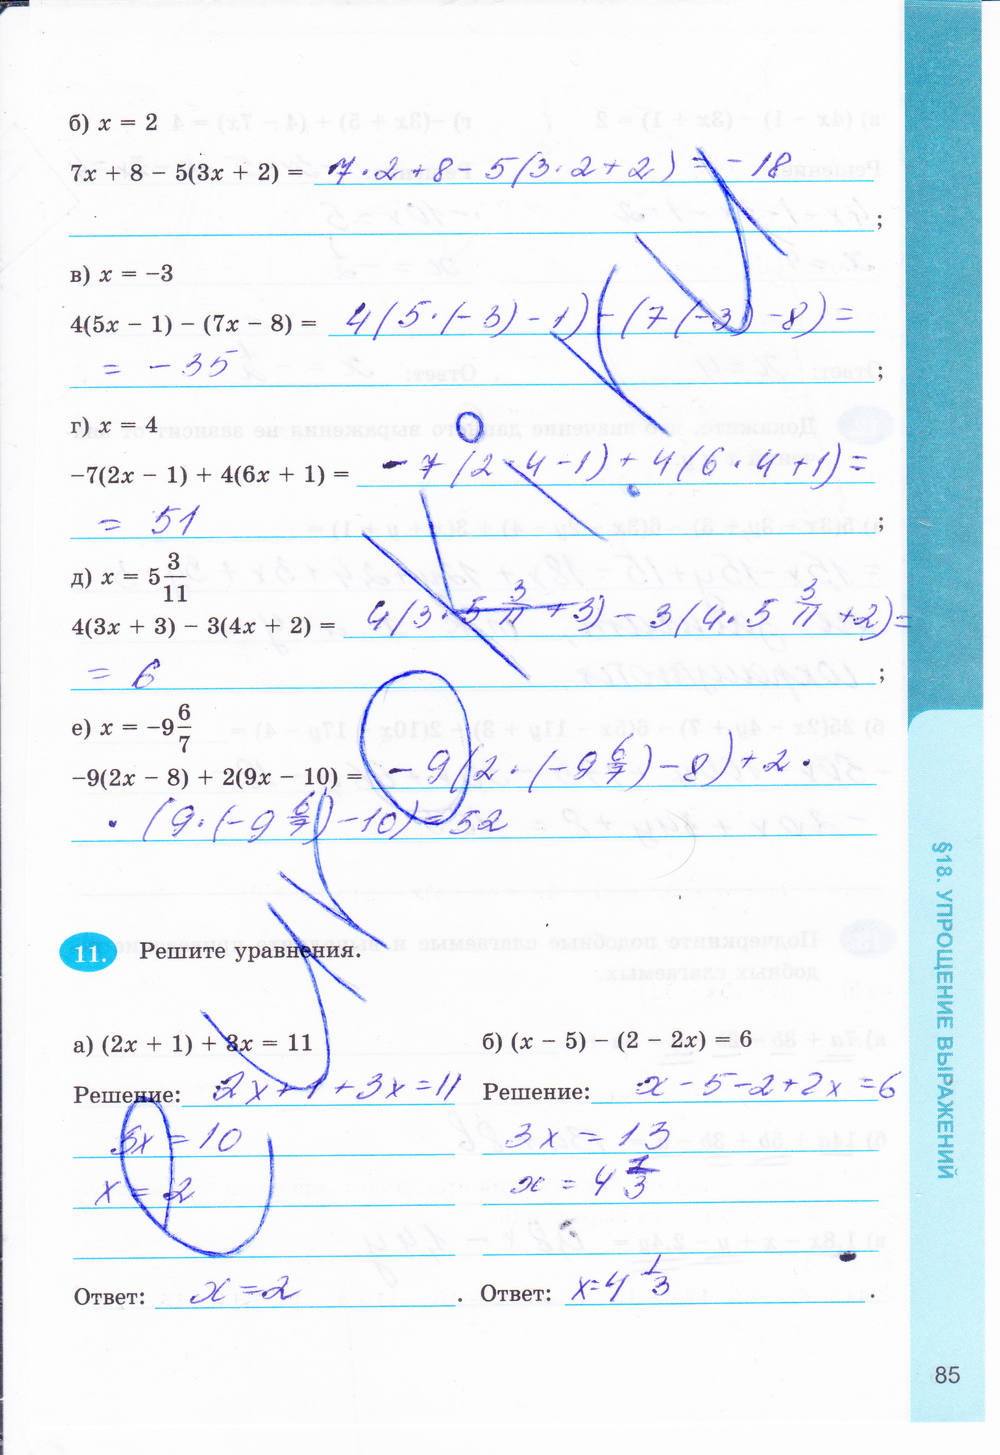 б) x = 2
7x + 8 − 5(3x + 2) = 7·2+8−5(3·2+2) = −18
;
в) x = −3
4(5x − 1) − (7x − 8) = 4(5·(−3)−1)−(7(−3)−8)=
= −35
;
г) x = 4
−7(2x − 1) + 4(6x + 1) = −7(2·4−1)+4(6·4+1)=
= 51
;
д) x = 5 3/11
4(3x + 3) − 3(4x + 2) = 4(3·5 3/11 +3)−3(4·5 3/11 +2)=
= 6
;
е) x = −9 6/7
−9(2x − 8) + 2(9x − 10) = −9(2·(−9 6/7)−8)+2·
·(9·(−9 6/7)−10)=52
11. Решите уравнения.
а) (2x + 1) + 3x = 11
б) (x − 5) − (2 − 2x) = 6
Решение: 2x+1+3x=11
Решение: x−5−2+2x=6
5x = 10
3x = 13
x = 2
x = 4 1/3
Ответ: x=2.
Ответ: x=4 1/3.
§18. УПРОЩЕНИЕ ВЫРАЖЕНИЙ
85